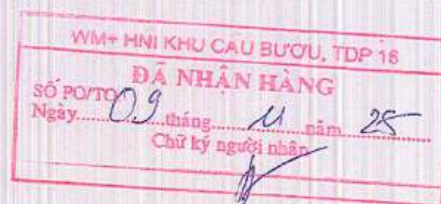 WM+ HNI KHU CẦU BƯƠU, TDP 16
ĐÃ NHẬN HÀNG
SỐ PO/TO
Ngày 09 tháng 11 năm 25
Chữ ký người nhận